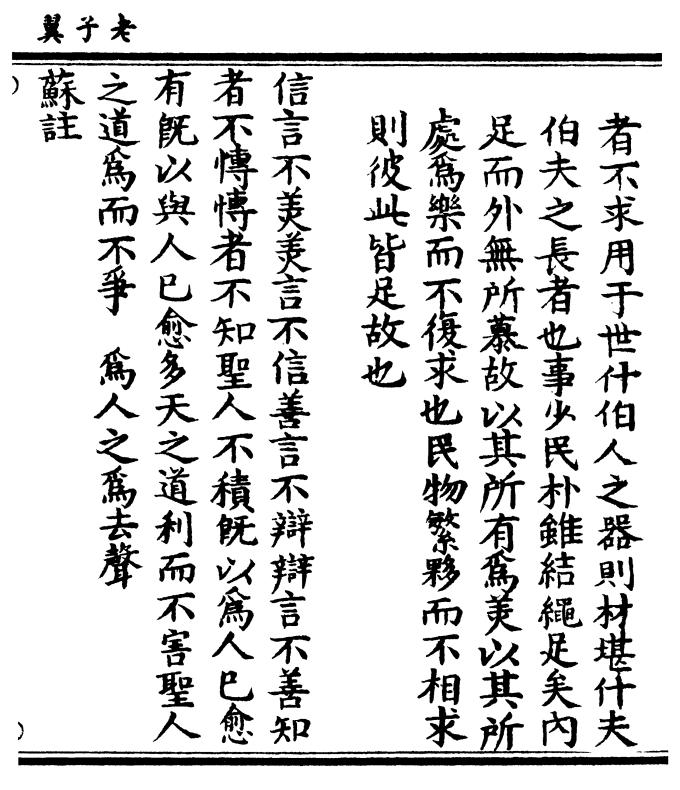 老子翼
者不求用于世什伯人之器則材堪什夫
伯夫之長者也事少民朴雖結繩足矣內
足而外無所慕故以其所有爲美以其所
處爲樂而不復求也民物繁夥而不相求
則彼此皆足故也
信言不美美言不信善言不辯辯言不善知
者不慱慱者不知聖人不積既以爲人已愈
有既以與人已愈多天之道利而不害聖人
之道爲而不爭　爲人之爲去聲
蘇註